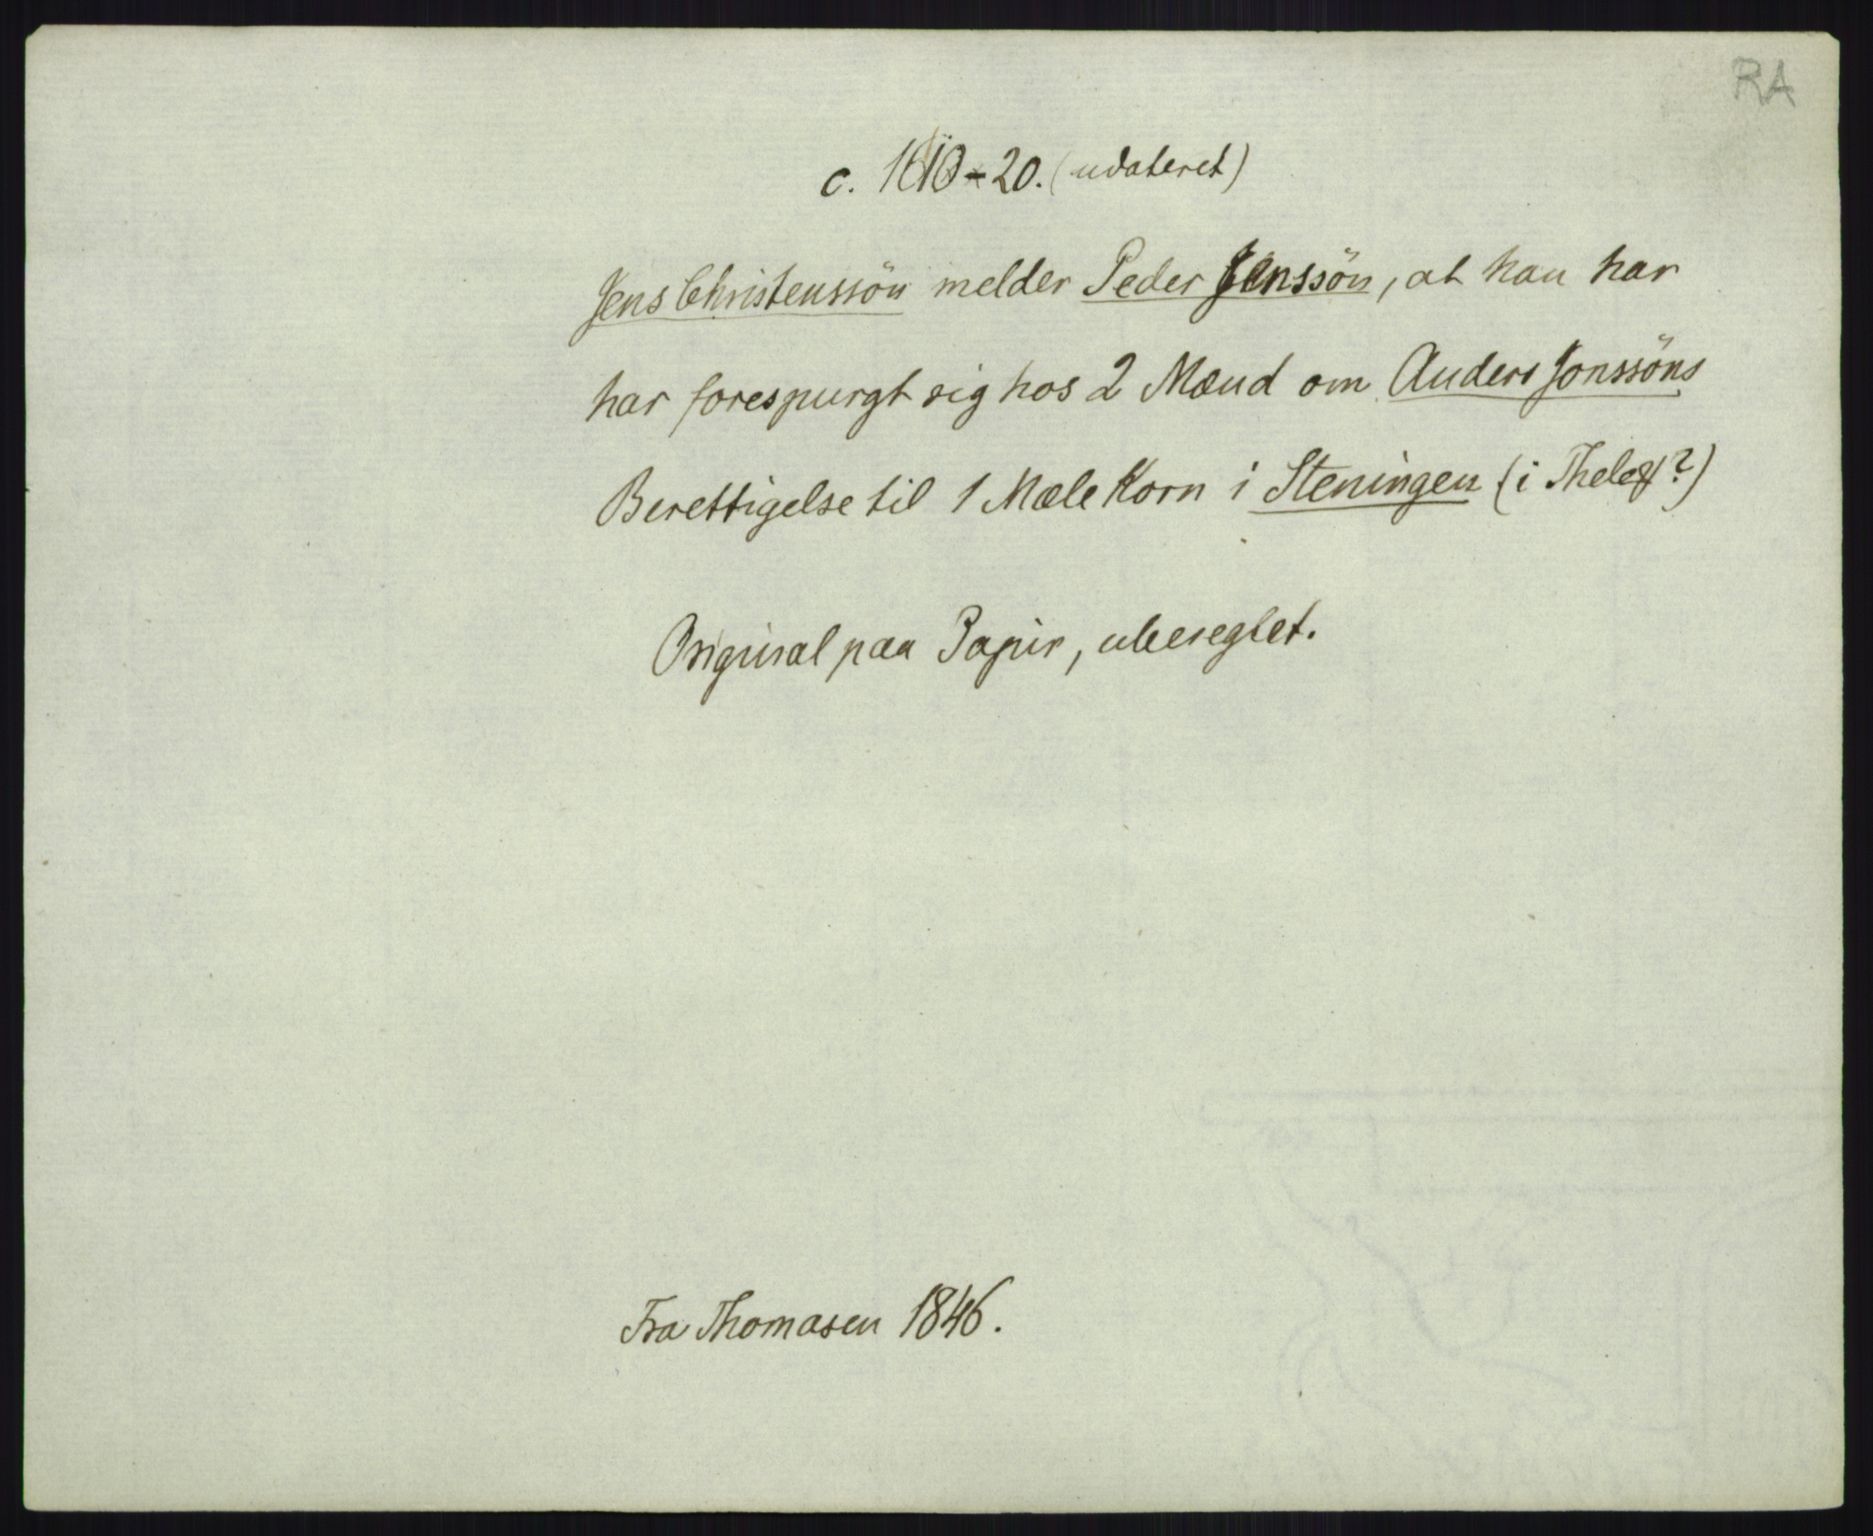 RA
c. 1610-20. (udateret)
Jens Christenssön melder Peder Jenssön, at han har
har forespurgt sig hos 2 Mænd om Anders Jonssöns
Berettigelse til 1 Mæle Korn i Steningen (i Thelem?)
Original paa Papir, ubeseglet.
Fra Thomasen 1846.